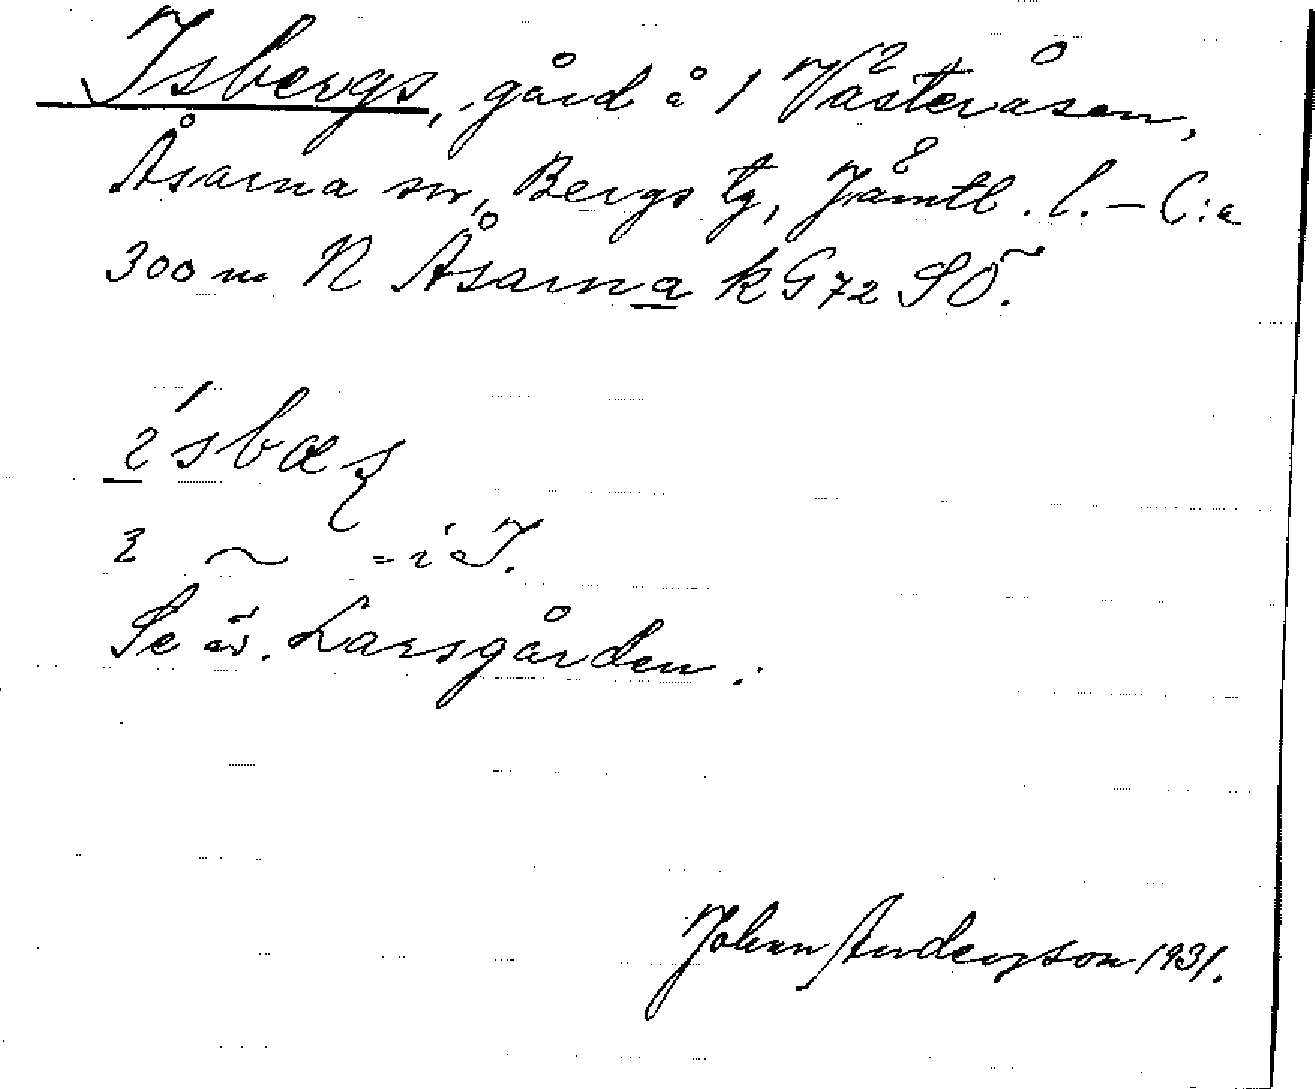 Isbergs, gård å 1 Västeråsen,
Åsarna sn, Bergs tg, Jämtl. l. – C:a
300 m N Åsarna k G 72 SÖ.
ísbæʂ
i ~ = i I.
Se äv. Larsgården.
John Anderson 1931.